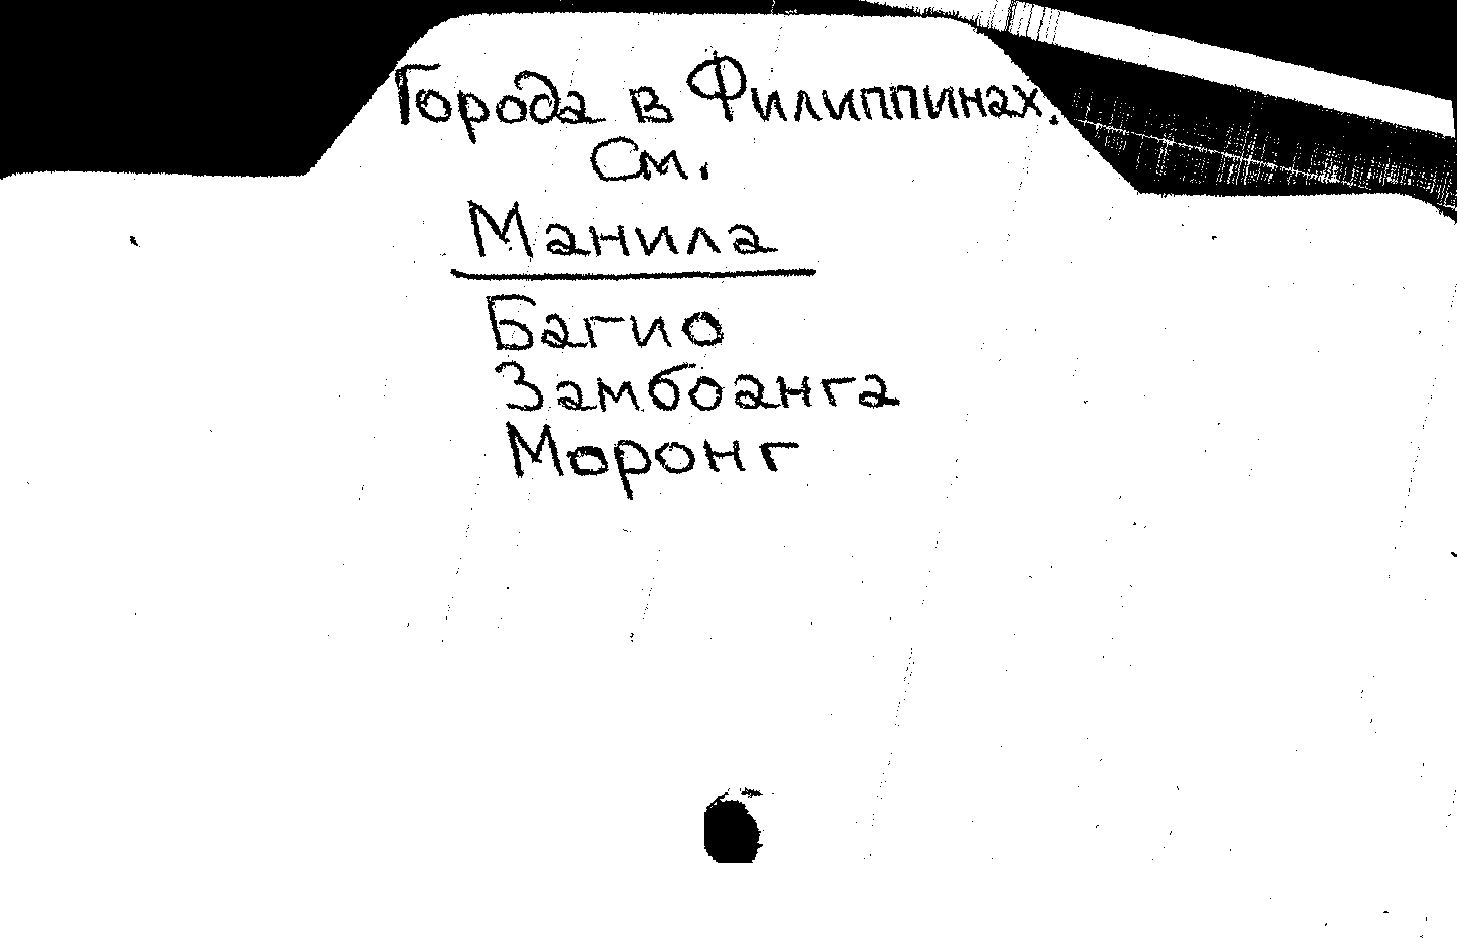 Города в Филиппинах.
См.
Манила
Багио
Замбоанга
Моронг